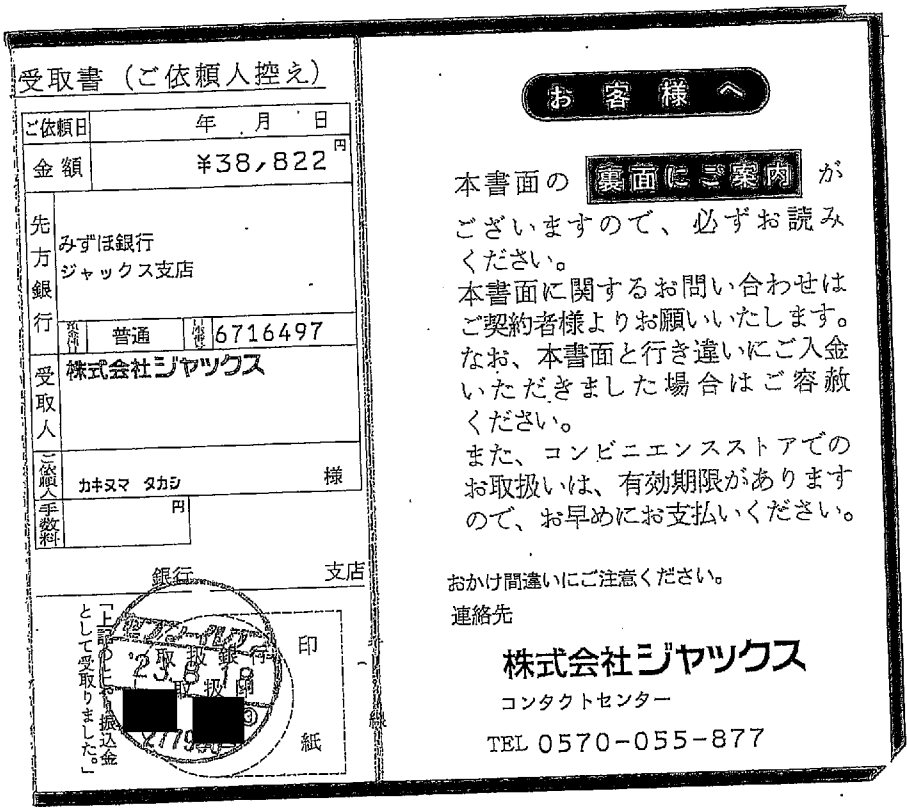 受取書（ご依頼人控え）
ご依頼日 年 月 日
金額 ¥38,822円
先方銀行
みずほ銀行
ジャックス支店
預金種目 普通 口座番号 6716497
受取人 株式会社ジャックス
ご依頼人 カキヌマ タカシ 様
手数料 円
銀行 支店
「上記のとおり振込金
として受取りました。」
取扱銀行
取扱
'23.8.18
③
印
紙
線
お客様へ
本書面の 裏面にご案内 が
ございますので、必ずお読み
ください。
本書面に関するお問い合わせは
ご契約者様よりお願いいたします。
なお、本書面と行き違いにご入金
いただきました場合はご容赦
ください。
また、コンビニエンスストアでの
お取扱いは、有効期限があります
ので、お早めにお支払いください。
おかけ間違いにご注意ください。
連絡先
株式会社ジャックス
コンタクトセンター
TEL 0570-055-877